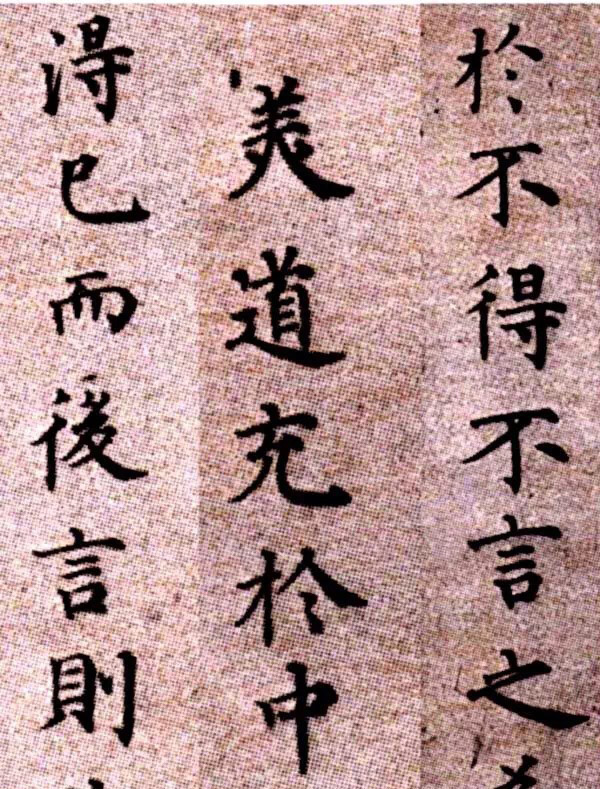 於不得不言之
美道充於中
淂已而後言則